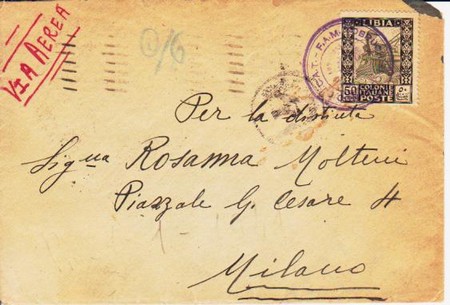 VIA AEREA
LIBIA
50
COLONIE
ITALIANE
POSTE
Per la distinta
Sig.na Rosanna Molteni
Piazzale G. Cesare 4
Milano